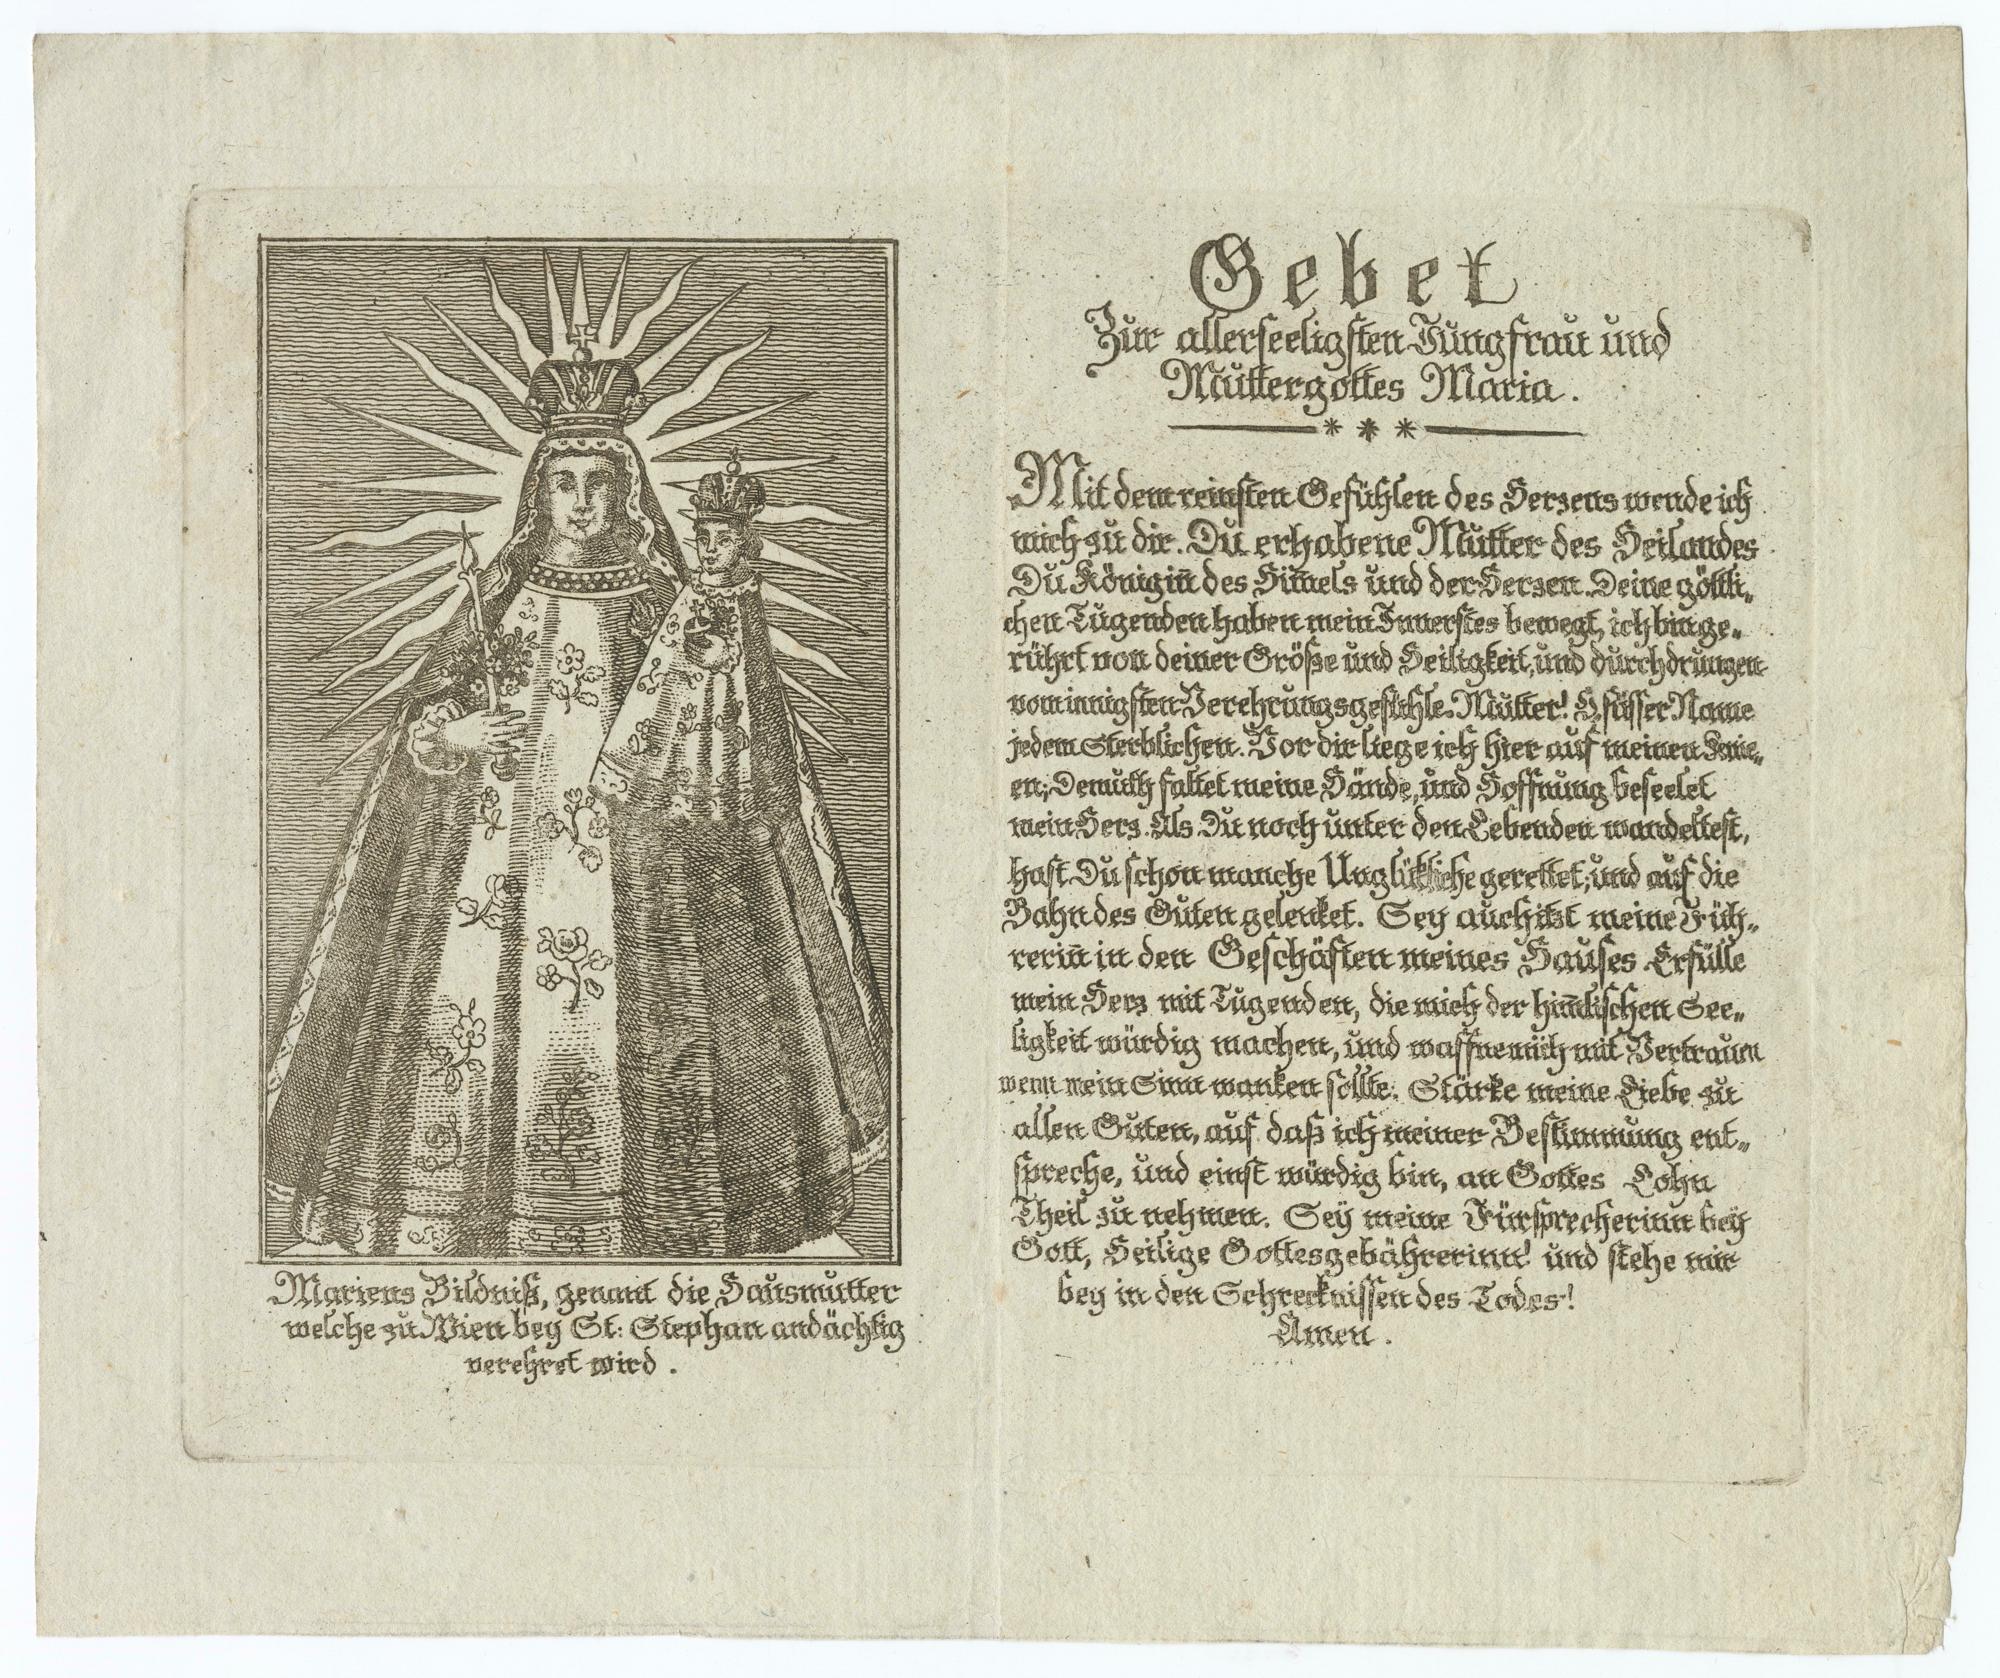 Mariens Bildniß, genant die Hausmutter
welche zu Wien bey St: Stephan andächtig
verehret wird .
Gebet
Zur allerseeligsten Jungfrau und
Muttergottes Maria .
Mit dem reinsten Gefühlen des Herzens wende ich
mich zu dir. Du erhabene Mutter des Heilandes
Du Königin̄ des Him̄els und der Herzen. Deine göttli„
chen Tugenden haben mein Innerstes bewegt, ich bin ge„
rührt von deiner Größe und Heiligkeit, und durchdrungen
vom innigsten Verehrungsgefühle. Mutter! O, süsser Name
jedem Sterblichen. Vor dir liege ich hier auf meinen Knie„
en; Demuth faltet meine Hände, und Hoffnung beseelet
mein Herz. Als Du noch unter den Lebenden wandeltest,
hast Du schon manche Unglükliche gerettet, und auf die
Bahn des Guten gelenket. Sey auch itzt meine Füh„
rerin̄ in den Geschäften meines Hauses Erfülle
mein Herz mit Tugenden, die mich der him̄lischen See„
ligkeit würdig machen, und waffne mich mit Vertraun
wenn mein Sinn wanken sollte. Stärke meine Liebe zu
allen Guten, auf daß ich meiner Bestimmung ent„
spreche, und einst würdig bin, an Gottes Lohn
Theil zu nehmen. Sey meine Fürsprecherinn bey
Gott, Heilige Gottesgebährerinn! und stehe mir
bey in den Schrecknissen des Todes!
Amen .